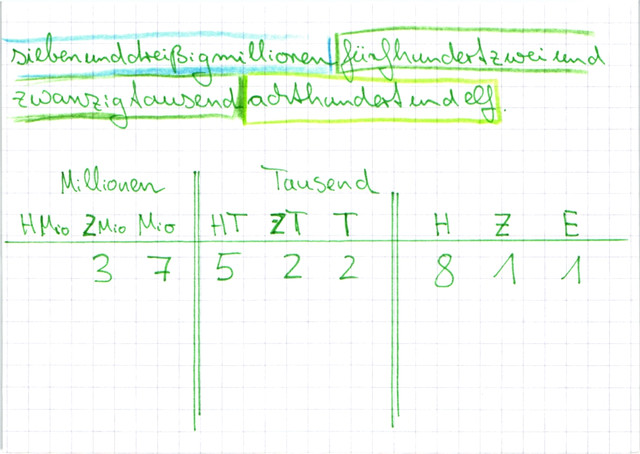 siebenunddreißigmillionenfünfhundertzweiund
zwanzigtausendachthundertundelf.
Millionen Tausend
HMio ZMio Mio HT ZT T H Z E
3 7 5 2 2 8 1 1